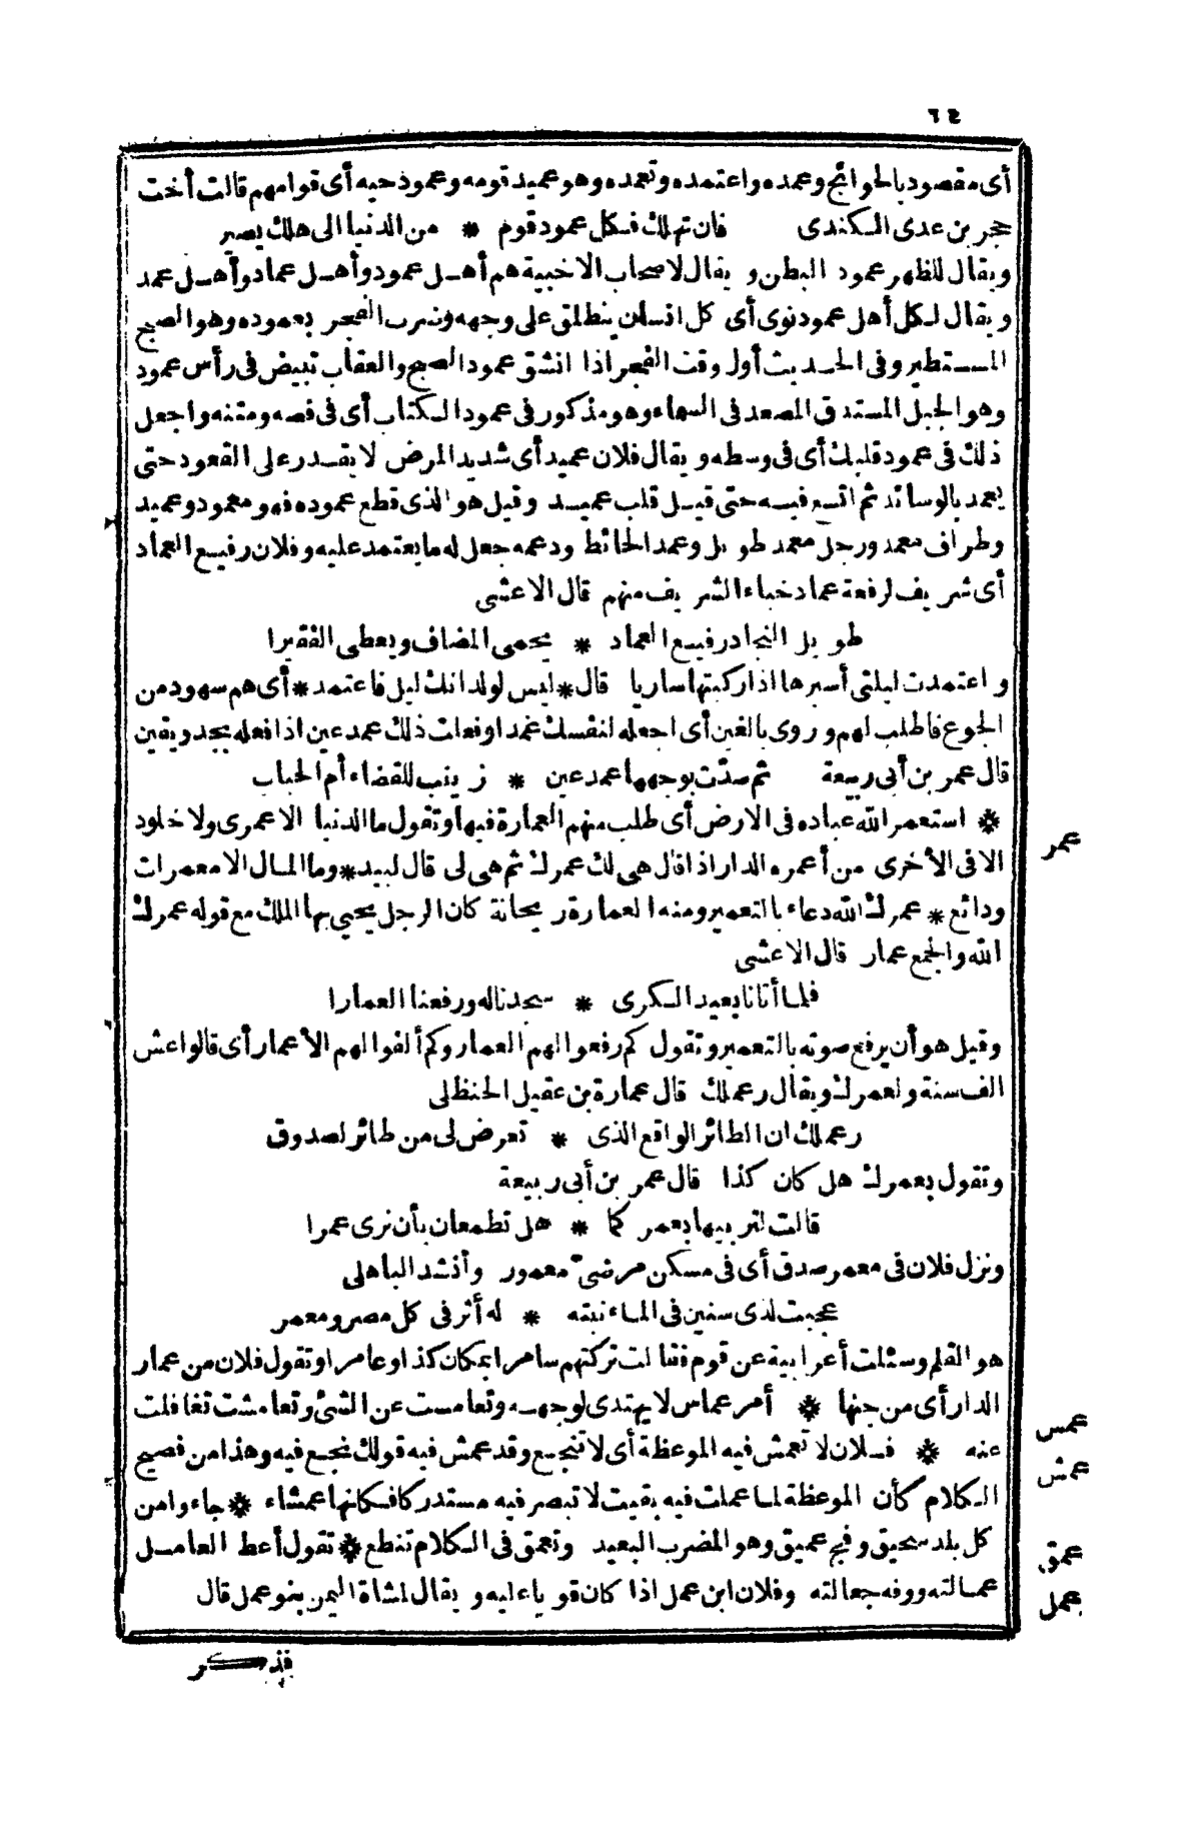 ٦٤
أى مقصود بالحوائج وعمده واعتمده وتعمده وهو عميد قومه وعمود حيه أى قوامهم قالت أخت
حجر بن عدى الكندى فان تهلك فكل عمود قوم * من الدنيا الى هلك يصير
ويقال للظهر عمود البطن ويقال لاصحاب الاخبية هم أهل عمود وأهل عماد وأهل عمد
ويقال لكل أهل عمود نوى أى كل انسان ينطلق على وجهه وضرب الفجر بعموده وهو الصبح
المستطير وفى الحديث أول وقت الفجر اذا انشق عمود الصبح والعقاب تبيض فى رأس عمود
وهو الجبل المستدق المصعد فى السماء وهو مذكور فى عمود الكتاب أى فى فصه ومتنه واجعل
ذلك فى عمود قلبك أى فى وسطه ويقال فلان عميد أى شديد المرض لا يقدر على القعود حتى
يعمد بالوسائد ثم اتسع فيه حتى قيل قلب عميد وقيل هو الذى قطع عموده فهو معمود وعميد
وطراف معمد ورجل معمد طويل وعمد الحائط ودعمه جعل له ما يعتمد عليه وفلان رفيع العماد
أى شريف لرفعة عماد خباء الشريف منهم قال الاعشى
طويل النجاد رفيع العماد * يحمى المضاف ويعطى الفقيرا
واعتمدت ليلتى أسيرها اذا ركبتها ساريا قال * ليس لولدانك ليل فاعتمد * أى هم سهود من
الجوع فاطلب لهم وروى بالغين أى اجعله لنفسك غمدا وفعلت ذلك عمد عين اذا فعله بجد ويقين
قال عمر بن أبى ربيعة ثم صدّت بوجهها عمد عين * زينب للقضاء أم الحباب
* استعمر الله عباده فى الارض أى طلب منهم العمارة فيها وتقول ما الدنيا الا عمرى ولا خلود
عمر
الا فى الأخرى من أعمره الدار اذا قال هى لك عمرك ثم هى لى قال لبيد * وما المال الا معمرات
ودائع * عمرك الله دعاء بالتعمير ومنه العمارة ريحانة كان الرجل يحيى بها الملك مع قوله عمرك
الله والجمع عمار قال الاعشى
فلما أتانا بعيد الكرى * سجدنا له ورفعنا العمارا
وقيل هو أن يرفع صوته بالتعمير وتقول كم رفعوا لهم العمار وكم ألفوا لهم الأعمار أى قالوا عش
الف سنة ولعمرك ويقال رعملك قال عمارة بن عقيل الحنظلى
رعملك ان الطائر الواقع الذى * تعرض لى من طائر لصدوق
وتقول بعمرك هل كان كذا قال عمر بن أبى ربيعة
قالت لتربيها بعمركما * هل تطمعان بأن نرى عمرا
ونزل فلان فى معمر صدق أى فى مسكن مرضىّ معمور وأنشد الباهلى
عجبت لذى سنين فى الماء نبته * له أثر فى كل مصر ومعمر
هو القلم وسئلت أعرابية عن قوم فقالت تركتهم سامرا بمكان كذا وعامرا وتقول فلان من عمار
الدار أى من جنها * أمر عماس لا يهتدى لوجهه وتعامست عن الشئ وتعامشت تغافلت
عمس
عنه * فلان لا تعمش فيه الموعظة أى لا تنجع وقد عمش فيه قولك نجع فيه وهذا من فصيح
عمش
الكلام كأن الموعظة لما عملت فيه بقيت لا تبصر فيه مستدركا فكانها عمشاء * جاءوا من
كل بلد سحيق وفج عميق وهو المضرب البعيد وتعمق فى الكلام تنطع * تقول أعط العامل
عمق
عمالته ووفه جعالته وفلان ابن عمل اذا كان قويا عليه ويقال لمشاة اليمن بنو عمل قال
عمل
فذكر